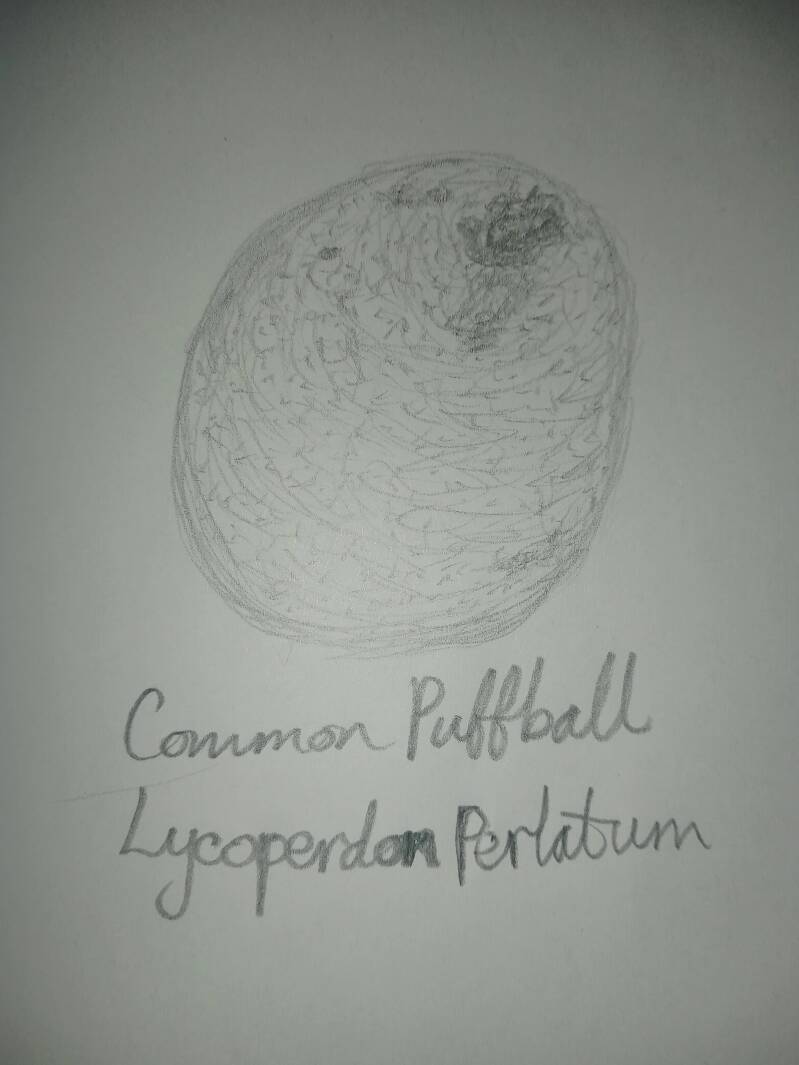 Common Puffball
Lycoperdon Perlatum